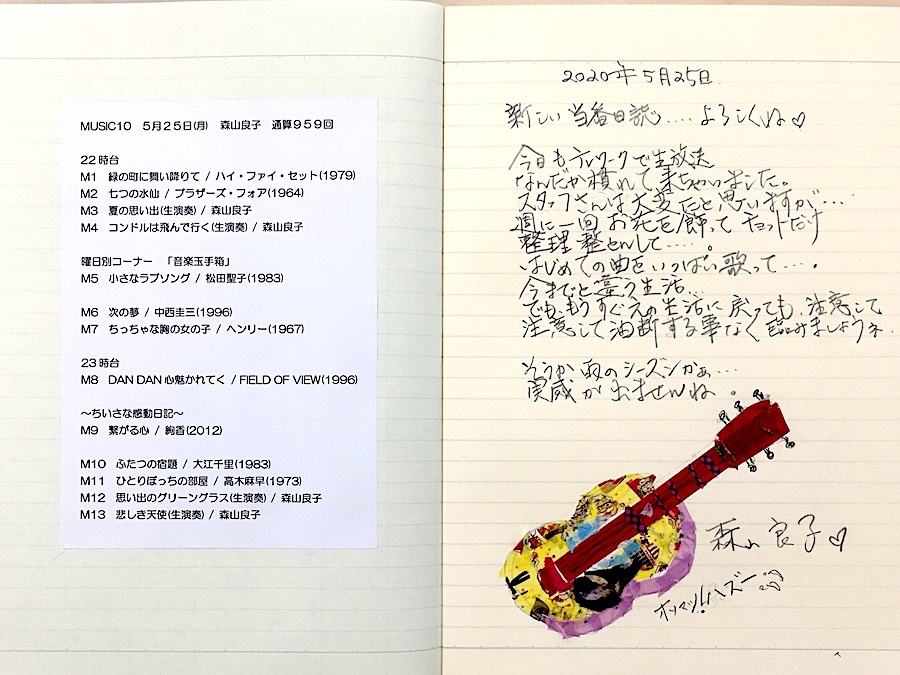 MUSIC10　5月25日(月)　森山良子　通算959回
22時台
M1　緑の町に舞い降りて / ハイ・ファイ・セット(1979)
M2　七つの水仙 / ブラザーズ・フォア(1964)
M3　夏の思い出(生演奏) / 森山良子
M4　コンドルは飛んで行く(生演奏) / 森山良子
曜日別コーナー　「音楽玉手箱」
M5　小さなラブソング / 松田聖子(1983)
M6　次の夢 / 中西圭三(1996)
M7　ちっちゃな胸の女の子 / ヘンリー(1967)
23時台
M8　DAN DAN 心魅かれてく / FIELD OF VIEW(1996)
～ちいさな感動日記～
M9　繋がる心 / 絢香(2012)
M10　ふたつの宿題 / 大江千里(1983)
M11　ひとりぼっちの部屋 / 高木麻早(1973)
M12　思い出のグリーングラス(生演奏) / 森山良子
M13　悲しき天使(生演奏) / 森山良子
2020年5月25日.
新しい当番日誌.... よろしくね♡
今日もテレワークで生放送
なんだか慣れて来ちゃいました。
スタッフさんは大変だと思いますが....
週に一回 お花を飾って チョットだけ
整理整とんして.....。
はじめての曲をいっぱい歌って....。
今までと違う生活...
でも、もうすぐ元の生活に戻っても、注意して
注意して油断する事なく臨みましょうネ.
そうか 雨のシーズンかぁ...
実感が出ませんね。
森山良子♡